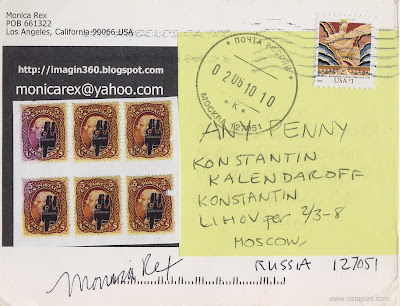 Monica Rex
POB 661322
Los Angeles, California 90066 USA
http://imagin360.blogspot.com
monicarex@yahoo.com
USA $1
ПОЧТА РОССИИ
МОСКВА 127051
ANY PENNY
KONSTANTIN
KALENDAROFF
KONSTANTIN
LIHOV per 2/3-8
MOSCOW,
RUSSIA 127051
Monica Rex
www.vistaprint.com